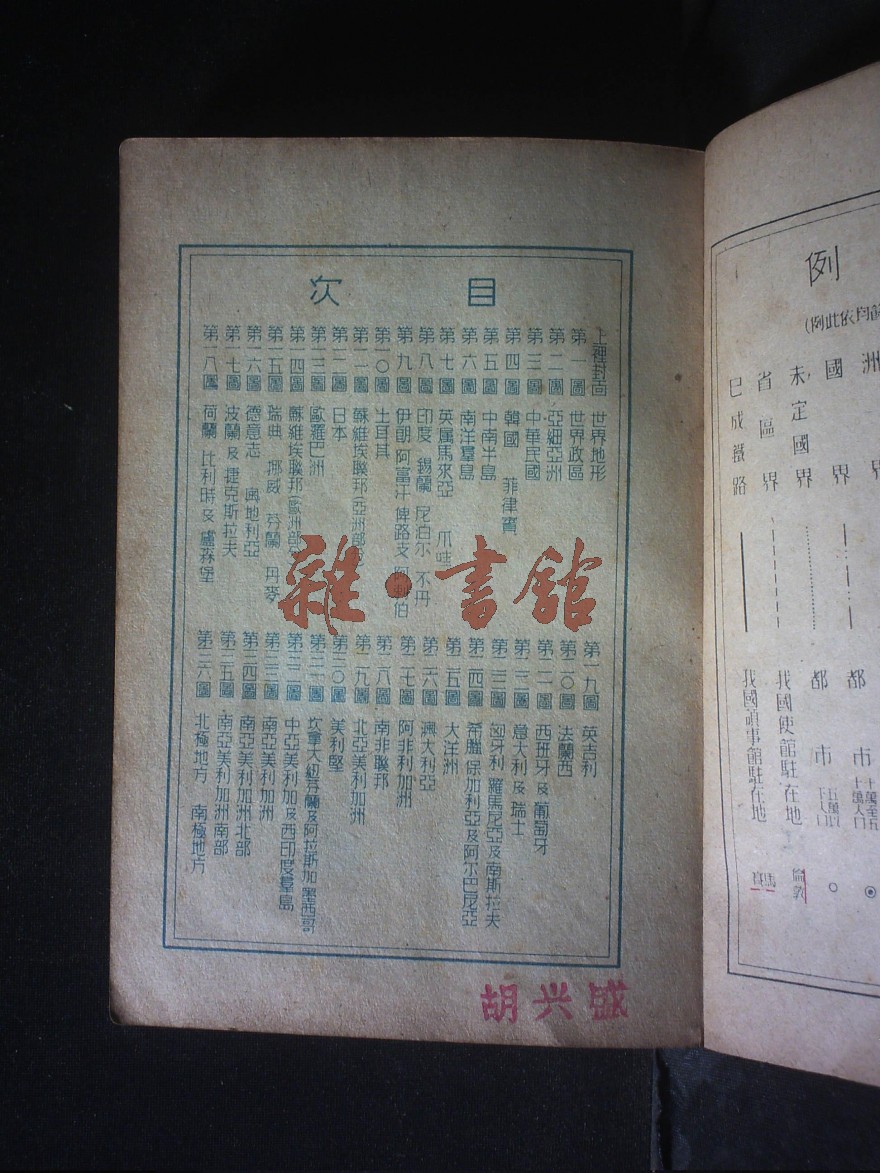 目次
上裡封面 世界地形
第一圖 世界政區
第二圖 亞細亞洲
第三圖 中華民國
第四圖 韓國 菲律賓
第五圖 中南半島
第六圖 南洋羣島
第七圖 英属馬來亞 爪哇
第八圖 印度 錫蘭 尼泊尔 不丹
第九圖 伊朗 阿富汗 俾路支 阿剌伯
第一〇圖 土耳其
第一一圖 蘇維埃聯邦(亞洲部
第一二圖 日本
第一三圖 歐羅巴洲
第一四圖 蘇維埃聯邦(歐洲部
第一五圖 瑞典 挪威 芬蘭 丹麥
第一六圖 德意志 奥地利亞
第一七圖 波蘭及捷克斯拉夫
第一八圖 荷蘭 比利時及盧森堡
第一九圖 英吉利
第二〇圖 法蘭西
第二一圖 西班牙及葡萄牙
第二二圖 意大利及瑞士
第二三圖 匈牙利 羅馬尼亞及南斯拉夫
第二四圖 希臘 保加利亞及阿尔巴尼亞
第二五圖 大洋洲
第二六圖 澳大利亞
第二七圖 阿非利加洲
第二八圖 南非聯邦
第二九圖 北亞美利加洲
第三〇圖 美利堅
第三一圖 坎拿大 紐芬蘭及阿拉斯加 墨西哥
第三二圖 中亞美利加及西印度羣島
第三三圖 南亞美利加洲
第三四圖 南亞美利加洲北部
第三五圖 南亞美利加洲南部
第三六圖 北極地方 南極地方
雜·書館
胡兴盛
例
(例此依均
洲 界
國 界
未定國界
省區界
已成鐵路
都市
都市
我國使館駐在地 倫敦
我國領事館駐在地